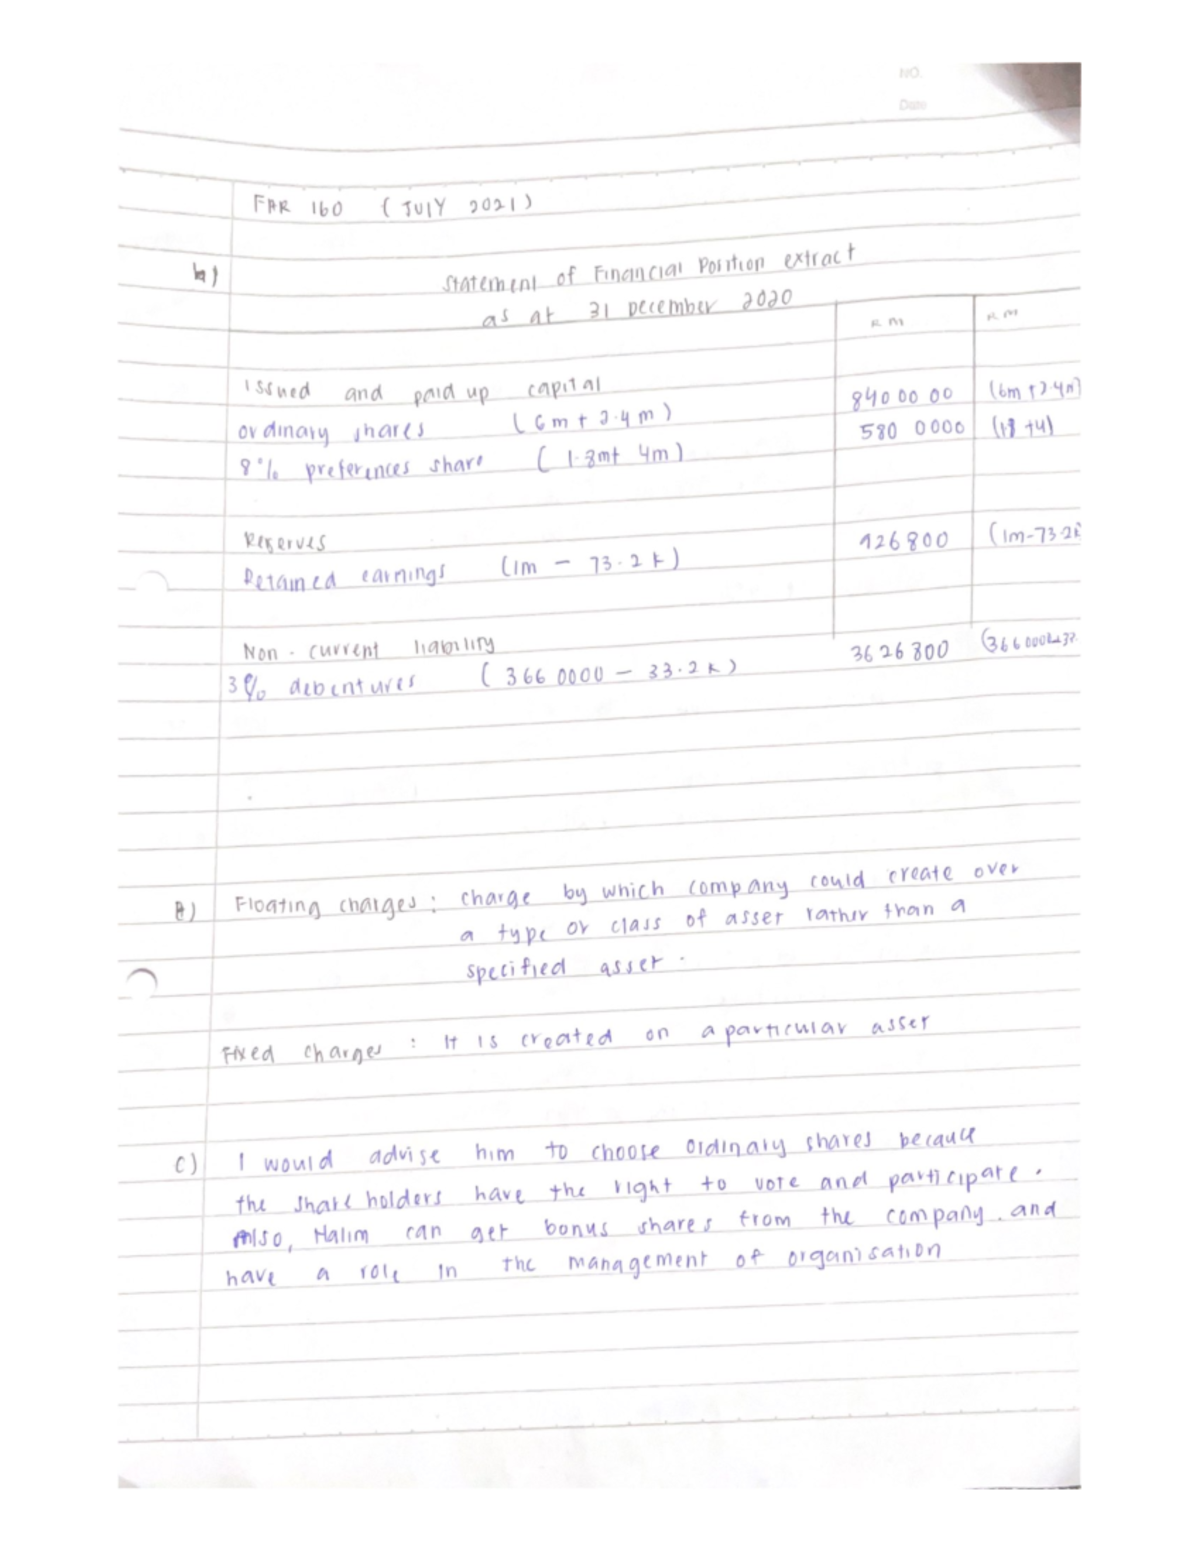 NO.
Date
FAR 160 (JULY 2021)
b)
Statement of Financial Position extract
as at 31 December 2020
RM RM
Issued and paid up capital
ordinary shares (6m + 2.4m) 8400000 (6m + 2.4m)
8% preferences share (1.8m+ 4m) 5800000 (1.8 +4)
Reserves
Retained earnings (1m - 73.2k) 926800 (1m-73.2k
Non-current liability
3% debentures (3660000 - 33.2k) 3626800
a) Floating charges : charge by which company could create over
a type or class of asset rather than a
specified asset.
Fixed charges : It is created on a particular asset
c) I would advise him to choose ordinary shares because
the shareholders have the right to vote and participate.
Also, Halim can get bonus shares from the company. and
have a role in the management of organisation